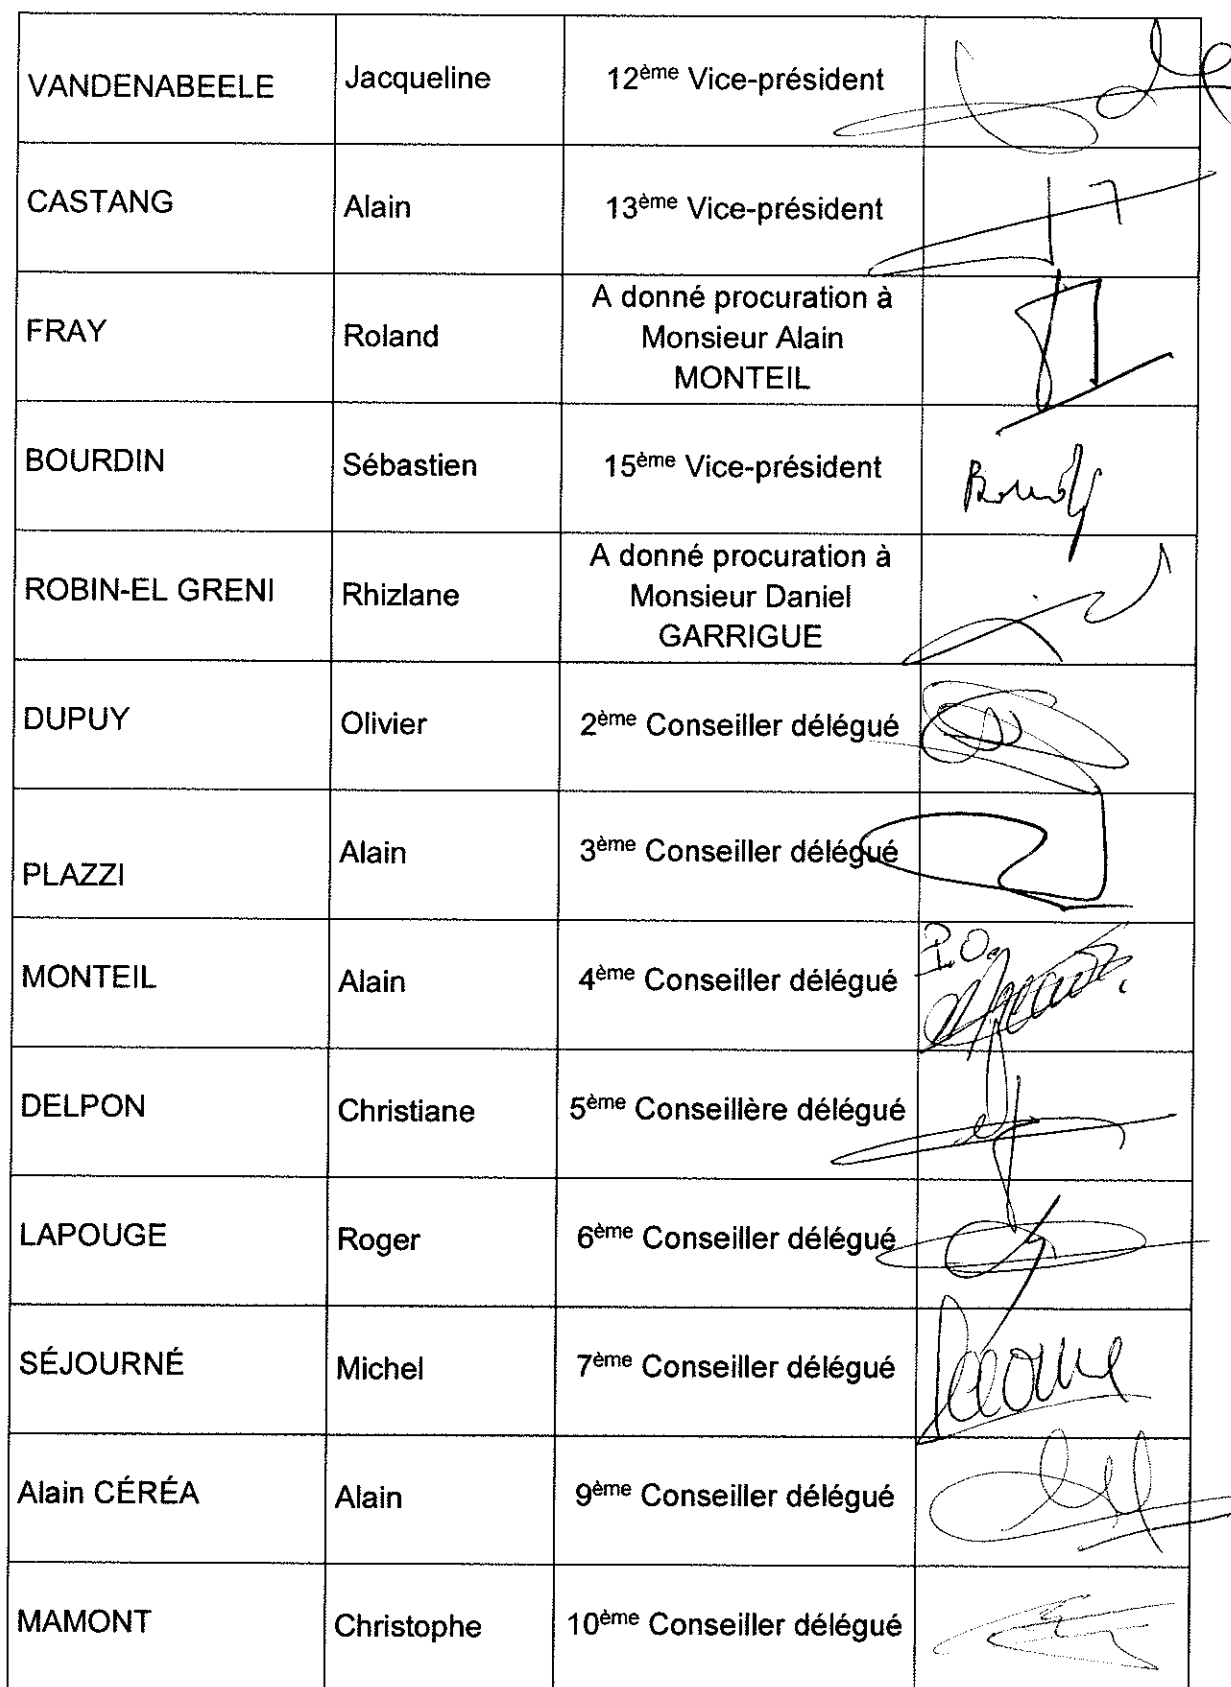 VANDENABEELE Jacqueline 12ème Vice-président
CASTANG Alain 13ème Vice-président
FRAY Roland A donné procuration à
Monsieur Alain
MONTEIL
BOURDIN Sébastien 15ème Vice-président
ROBIN-EL GRENI Rhizlane A donné procuration à
Monsieur Daniel
GARRIGUE
DUPUY Olivier 2ème Conseiller délégué
PLAZZI Alain 3ème Conseiller délégué
MONTEIL Alain 4ème Conseiller délégué
DELPON Christiane 5ème Conseillère délégué
LAPOUGE Roger 6ème Conseiller délégué
SÉJOURNÉ Michel 7ème Conseiller délégué
Alain CÉRÉA Alain 9ème Conseiller délégué
MAMONT Christophe 10ème Conseiller délégué